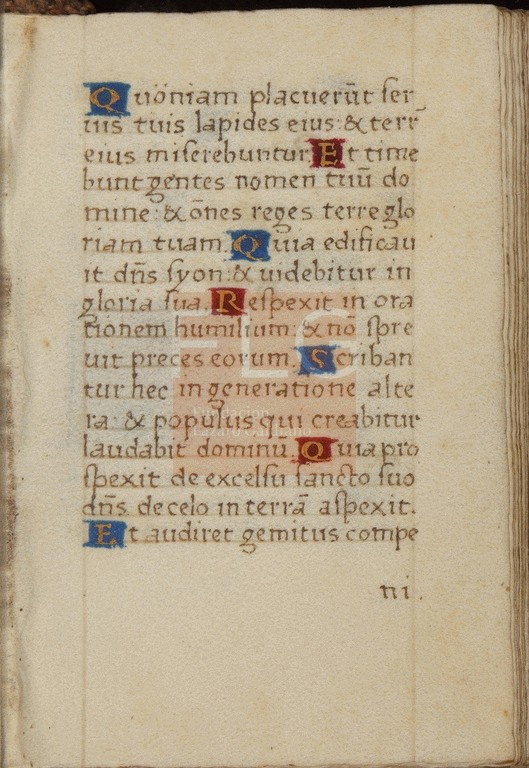 Quoniam placuerūt ser
uis tuis lapides eius: & terrˉ
eius miserebuntur. Et time
bunt gentes nomen tuū do
mine: & oēs reges terre glo
riam tuam. Quia edificau
it dn̄s syon: & uidebitur in
gloria sua. Respexit in ora
tionem humilium: & nō spre
uit preces eorum. Scriban
tur hec in generatione alte
ra: & populus qui creabitur
laudabit dominū. Quia pro
spexit de excelsu sancto suo
dn̄s de celo in terrā aspexit.
Et audiret gemitus compe
ni.
FLG
Fundación
Lázaro Galdiano